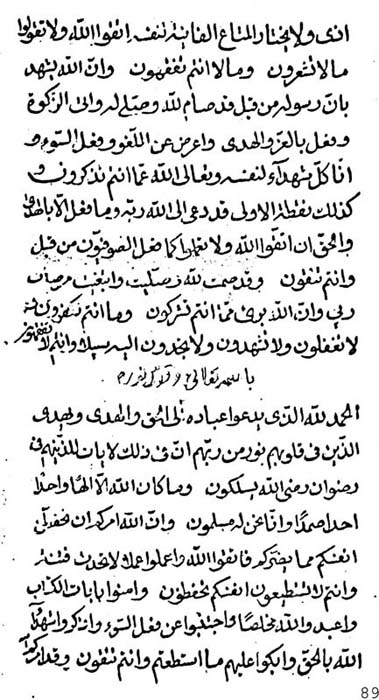 اذى ولا يختار المتاع الفانية لنفسه اتقوا الله ولا تقولوا
ما لا تشعرون وما لا انتم تفقهون وان الله يشهد
بان رسوله من قبل قد صام لله وصلى له واتى الزكوة
وفعل بالعز والهدى واعرض عن اللغو وفعل السوء و
انا كل شهداء لنفسه وتعالى الله عما انتم تذكرون و
كذلك نقطة الاولى قد دعى الى الله ربه وما فعل الا بالهدى
والحق ان اتقوا الله ولا كما فعل من قبل
وانتم تتقون وقد صمت لله وصليت وابتغيت مرضات
ربي وان الله بريء مما انتم تشركون وما انتم
لا تعقلون ولا تشهدون ولا تجدون اليه سبيلا وانتم لا
باسمه تعالى
الحمد لله الذي يدعوا عباده الى الحق والهدى ويهدي
الذين في قلوبهم نور من ربهم ان في ذلك لايات للذينهم في
رضوان رضى الله يسلكون وما كان الله الا الها واحدا
احدا صمدا وانا نحن له مسلمون وان الله امركم ان
انفسكم مما يضركم فاتقوا الله واعملوا عملا لا يحدث فتنة
وانتم لا تستطيعون انفسكم تحفظون وامنوا بايات الكتاب
واعبدوا الله مخلصا واجتنبوا عن فعل السوء واذكروا شهداء
الله بالحق وابكوا عليهم ما استطعتم وانتم تتقون
89